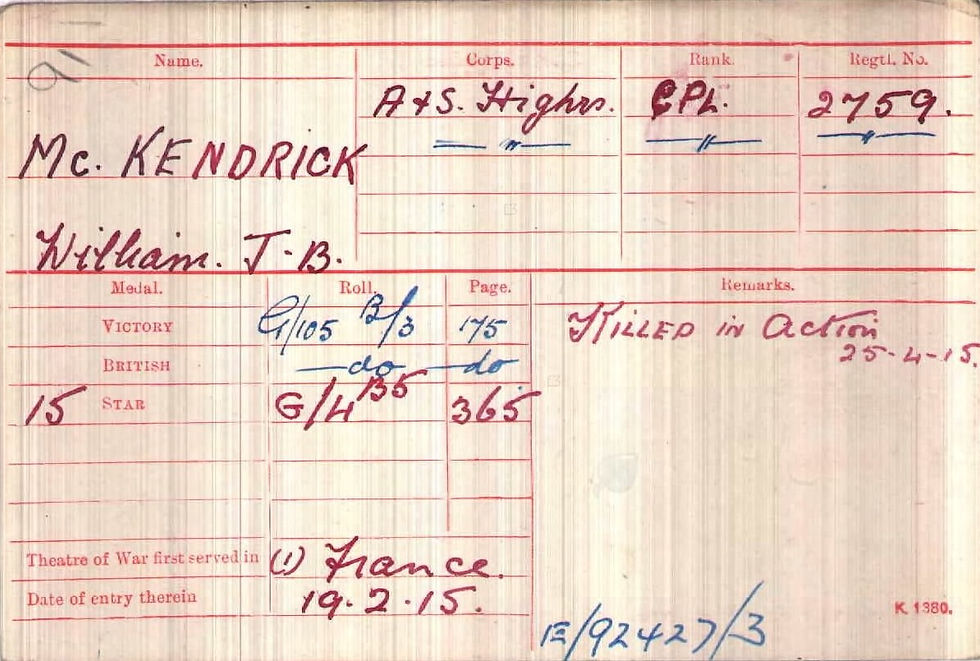 91
Name. Corps. Rank. Regtl. No.
A & S. Highrs. CPL. 2759.
Mc. KENDRICK — " — — " — — " —
William. J. B.
Medal. Roll. Page. Remarks.
VICTORY G/105 B/3 175 KILLED in Action
BRITISH — do — do 25-4-15.
15 STAR G/4 B5 365
Theatre of War first served in (1) France.
Date of entry therein 19.2.15.
K. 1380.
E/92427/3